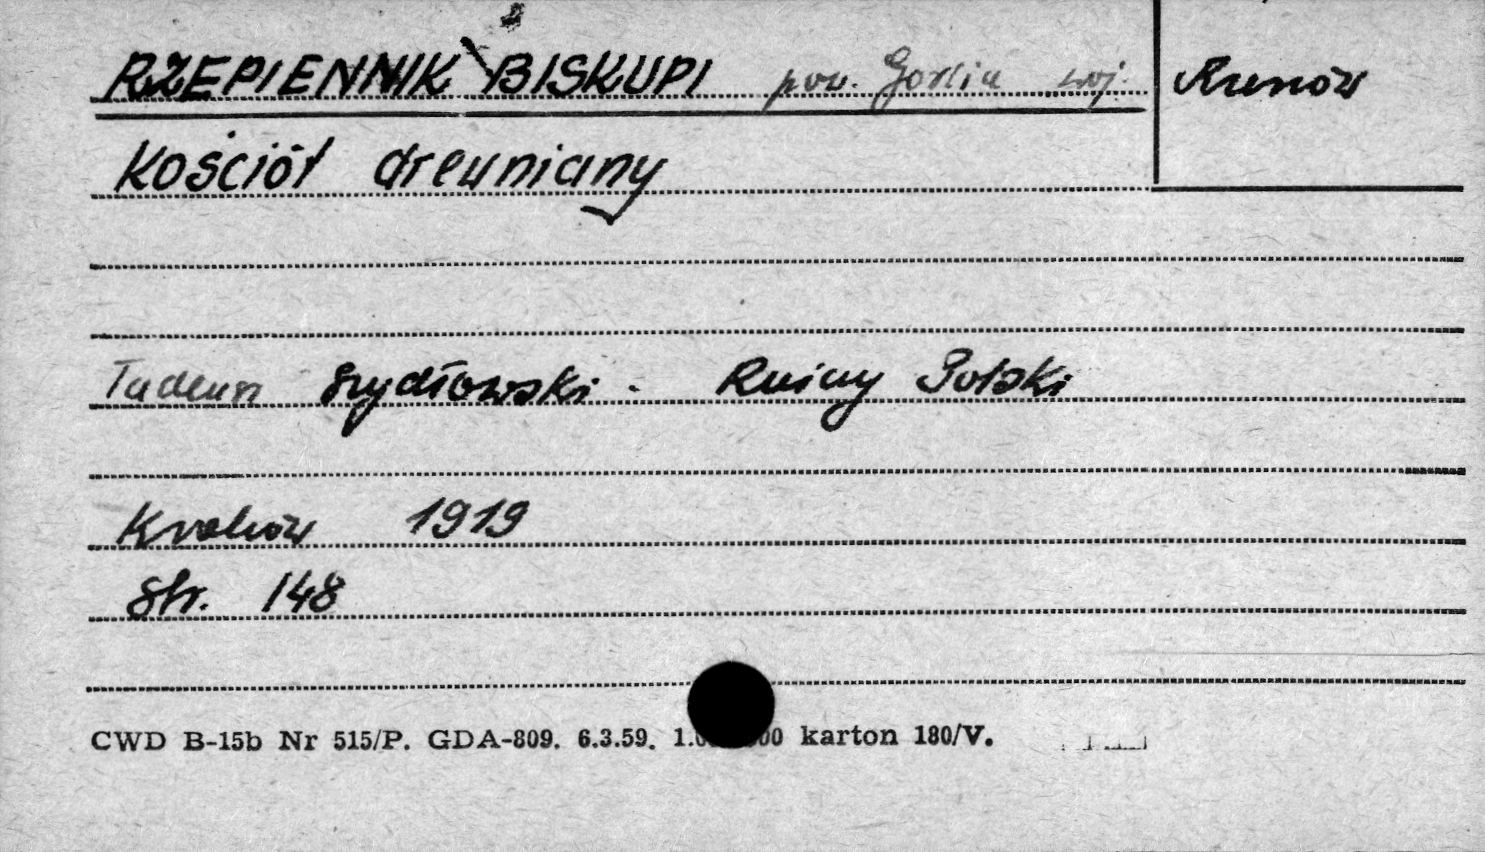 RZEPIENNIK BISKUPI pow. Gorlice woj. Rzeszów
Kościół drewniany
Tadeusz Szydłowski - Ruiny Polski
Kraków 1919
Str. 148
CWD B-15b Nr 515/P. GDA-809. 6.3.59. karton 180/V.